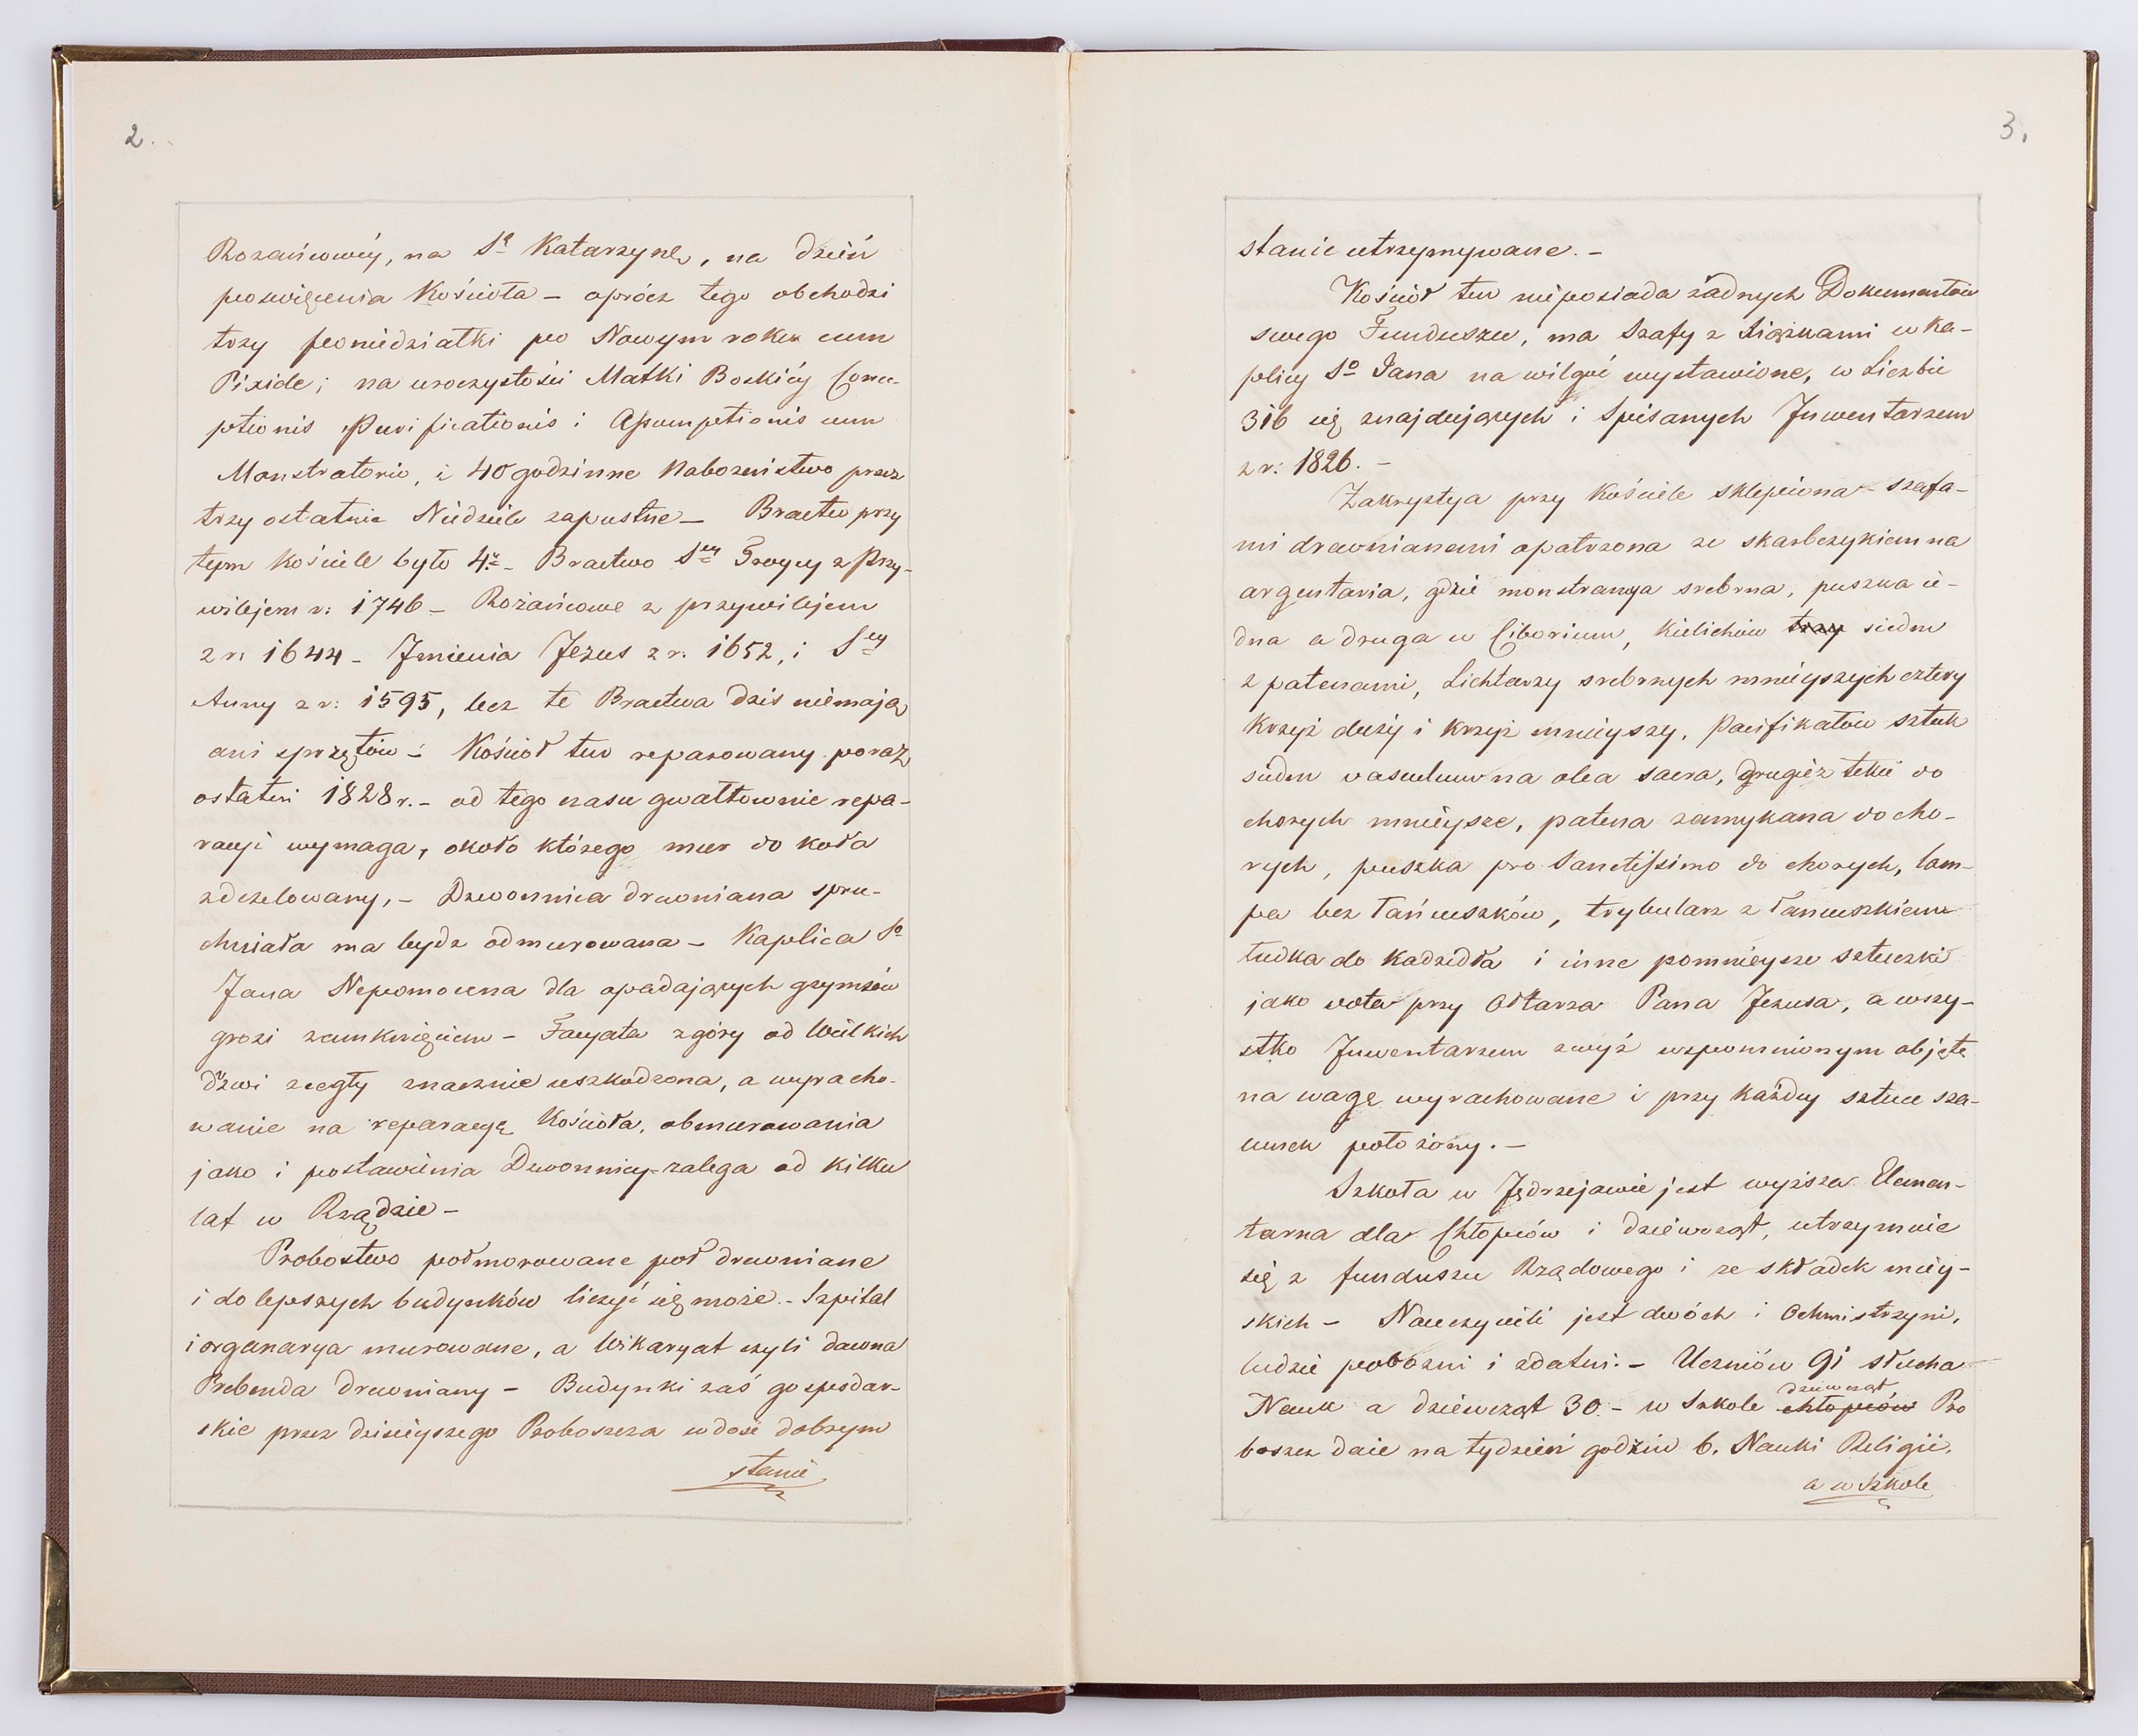 2.
Rozańcowéy, na Sę Katarzynę, na dzień
poswięcenia Kościoła – oprócz tego obchodzi
trzy poniedziałki po Nowym roku cum
Pixide; na uroczystości Matki Boskiéy Conce-
ptionis Purificationis i Assumptionis cum
Monstratorio, i 40 godzinne Nabozeństwo przez
trzy ostatnie Niedziele zapustne – Bractw przy
tym Kościele było 4. – Bractwo Sey Troycy z Przy-
wilejem r: 1746 – Rożańcowe z przywilejem
z r: 1644 – Jmienia Jezus z r. 1652, i Sey
Anny z r: 1595, lecz te Bractwa dzis niemają
ani sprzętów – Kościoł ten reparowany poraz
ostatni 1828 r. – od tego czasu gwałtownie repa-
racyi wymaga, około którego mur do koła
zdezelowany, – Dzwonnica drewniana spru-
chniała ma bydz odmurowana – Kaplica So
Jana Nepomocena dla opadających gzymsów
grozi zamknięciem – Facyata zgóry od Wielkich
dźwi zcegły znacznie uszkodzona, a wyracho-
wanie na reparacyę Kościoła, obmurowania
jako i postawienia Dzwonnicy – zalega od kilku
lat w Rządzie –
Probostwo poł morowane poł drewniane
i do lepszych budynków liczyć się może. – Szpital
i organarya murowane, a Wikaryat czyli dawna
Prebenda drewniany – Budynki zaś gospodar-
skie przez dzisieyszego Proboszcza wdość dobrym
stanie
3.
stanie utrzymywane. –
Kościoł ten nieposiada żadnych Dokumentów
swego Funduszu, ma Szafy z Siążkami w Ka-
plicy So Jana na wilgoć wystawione, w Liczbie
316 się znajdujących i Spisanych Jnwentarzem
z r: 1826. –
Zakrystya przy Kościele sklepiona – szafa-
mi drewnianemi opatrzona ze skarbczykiem na
argentaria, gdzie monstrancya srebrna, puszka ie-
dna a druga w Ciborium, Kielichów trzy siedm
z patenami, Lichtarzy srebrnych mnieyszych cztery
Krzyż duży i krzyż mnieyszy, Pacifikatów sztuk
siedm vasculum na olea sacra, drugież tekie do
chorych mnieysze, patena zamykana do cho-
rych, puszka pro Sanctissimo do chorych, lam-
pa bez łańcuszków, trybularz z łańcuszkiem
łudka do Kadzidła i inne pomnieysze sztuczki
jako vota przy Ołtarza Pana Jezusa, a wszy-
stko Jnwentarzem zwyż wspomnionym objęte
na wagę wyrachowane i przy każdey sztuce sza-
cunek położony. –
Szkoła w Jędrzejowie jest wyższa Elemen-
tarna dla Chłopców i dziewcząt, utrzymuie
się z funduszu Rządowego i ze składek miey-
skich – Nauczycieli jest dwóch i Ochmistrzyni,
ludzie pobożni i zdatni. – Uczniów 91 słucha
Nauk a dziewcząt 30. – w Szkole chłopców dziewcząt Pro
boszcz daie na tydzień godzin 6. Nauki Religii.
a w Szkole